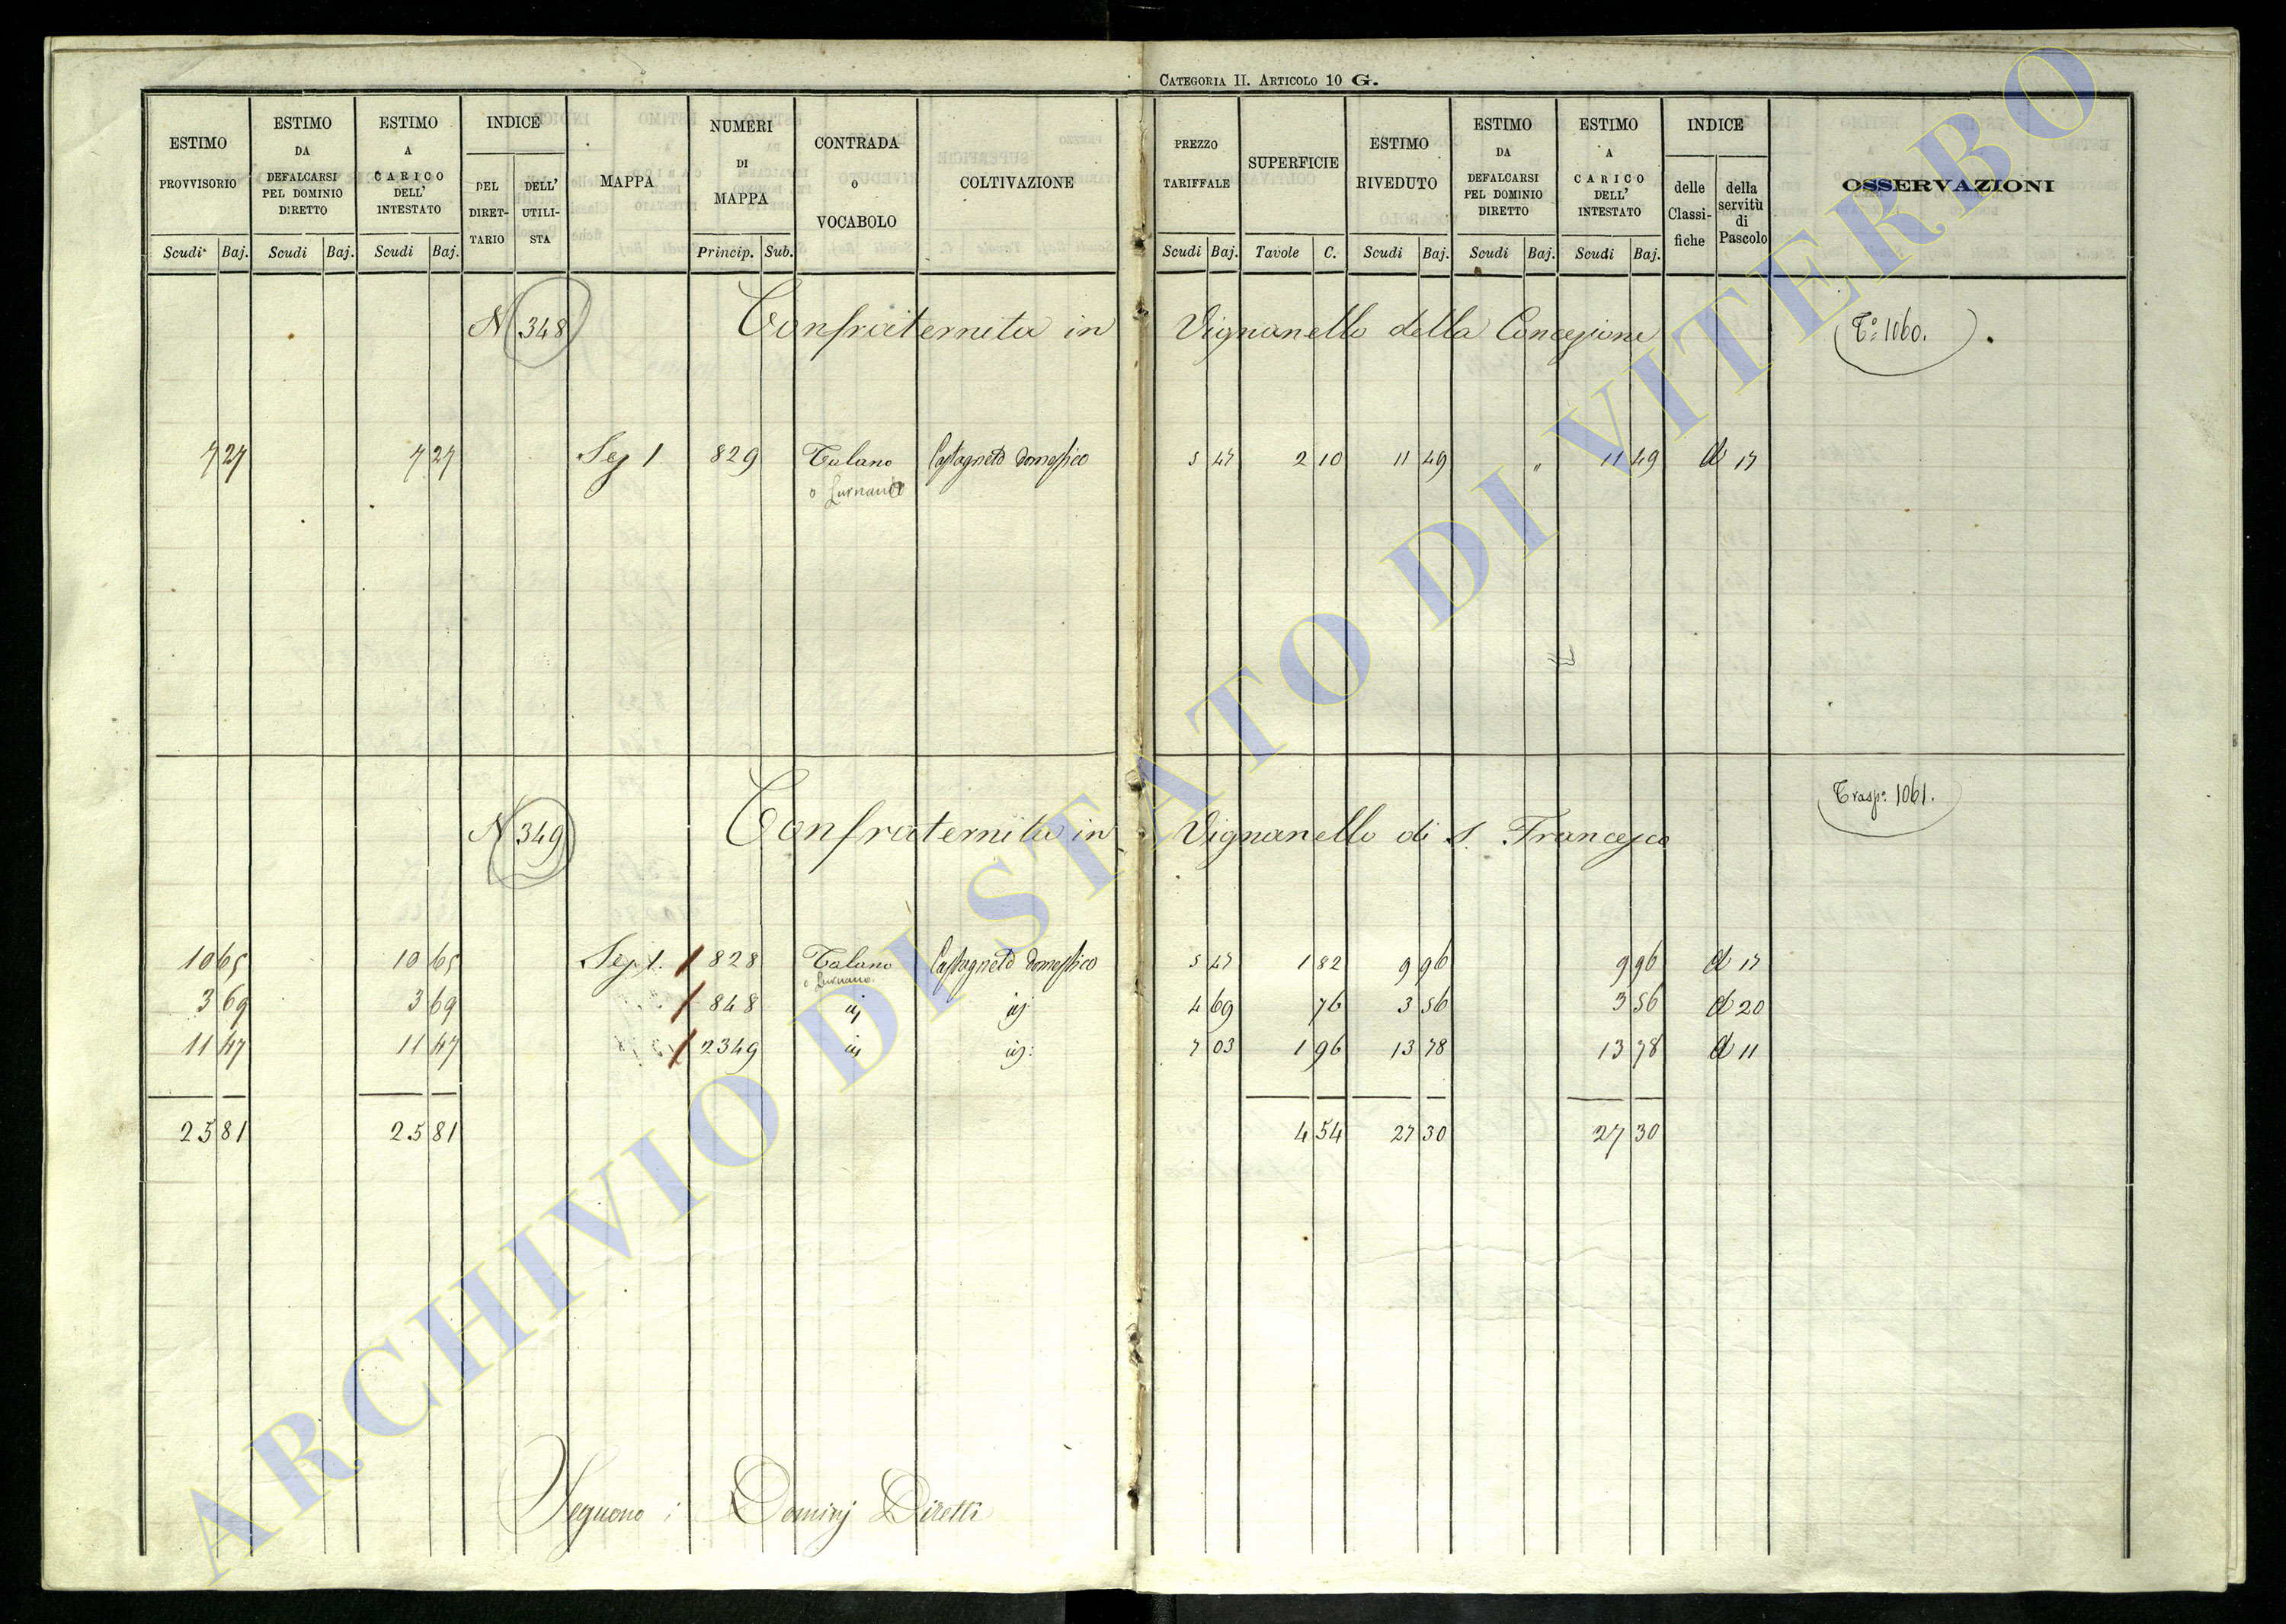 CATEGORIA II. ARTICOLO 10 G.
ESTIMO PROVVISORIO Scudi Baj.
ESTIMO DA DEFALCARSI PEL DOMINIO DIRETTO Scudi Baj.
ESTIMO A CARICO DELL' INTESTATO Scudi Baj.
INDICE DEL DIRETTARIO DELL' UTILISTA
MAPPA
NUMERI DI MAPPA Princip. Sub.
CONTRADA O VOCABOLO
COLTIVAZIONE
PREZZO TARIFFALE Scudi Baj.
SUPERFICIE Tavole C.
ESTIMO RIVEDUTO Scudi Baj.
ESTIMO DA DEFALCARSI PEL DOMINIO DIRETTO Scudi Baj.
ESTIMO A CARICO DELL' INTESTATO Scudi Baj.
INDICE delle Classifiche della servitù di Pascolo
OSSERVAZIONI
N 348 Confraternita in Vignanello della Concezione To: 1060.
7 27 7 27 Sez 1 829 Talano Castagneto domestico 5 47 2 10 11 49 " 11 49 d 17
N 349 Confraternita in Vignanello di S. Francesco Traspo: 1061.
10 65 10 65 Sez. 1. 828 Talano Castagneto domestico 5 47 1 82 9 96 9 96 d 17
3 69 3 69 848 4 69 76 3 56 3 56 d 20
11 47 11 47 2349 7 03 1 96 13 78 13 78 d 11
25 81 25 81 4 54 27 30 27 30
Seguono i Dominj Diretti
ARCHIVIO DI STATO DI VITERBO